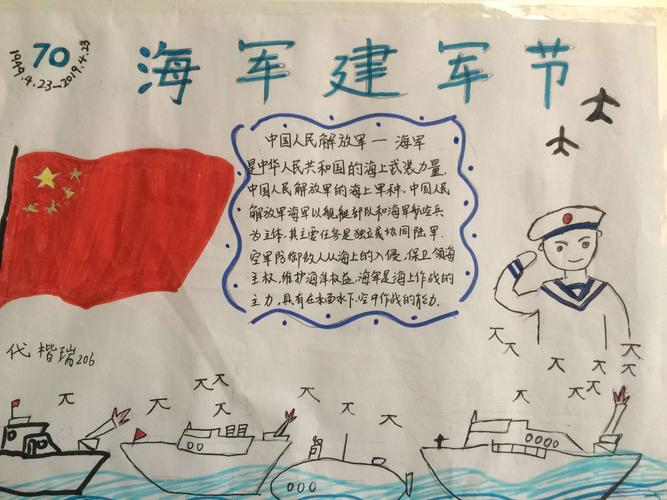 70
1949.4.23—2019.4.23
海军建军节
中国人民解放军—海军
是中华人民共和国的海上武装力量,
中国人民解放军的海上军种,中国人民
解放军海军以舰艇部队和海军航空兵
为主体,其主要任务是独立或协同陆军.
空军防御敌人从海上的入侵,保卫领海
主权,维护海洋权益.海军是海上作战的
主力,具有在水面水下.空中作战的能力.
代楷瑞206